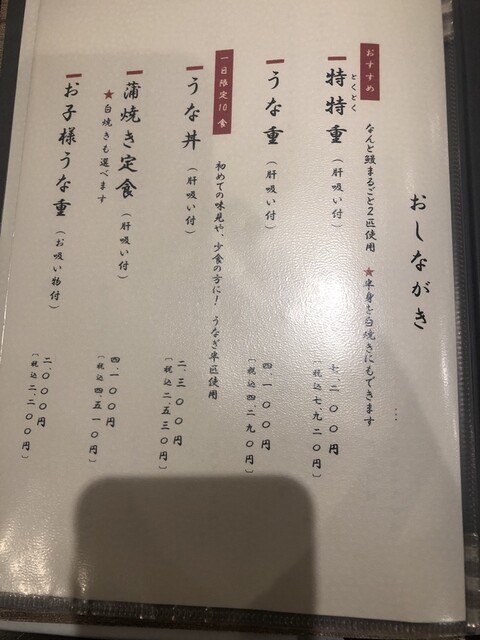 おしながき
おすすめ
なんと鰻まるごと2匹使用　★半身を白焼きにもできます
とくとく
特特重（肝吸い付）
七、二〇〇円
［税込七、九二〇円］
うな重（肝吸い付）
四、一〇〇円
［税込四、二九〇円］
一日限定10食
初めての味見や、少食の方に！　うなぎ半匹使用
うな丼（肝吸い付）
二、三〇〇円
［税込二、五三〇円］
蒲焼き定食（肝吸い付）
★白焼きも選べます
四、一〇〇円
［税込四、五一〇円］
お子様うな重（お吸い物付）
二、〇〇〇円
［税込二、二〇〇円］